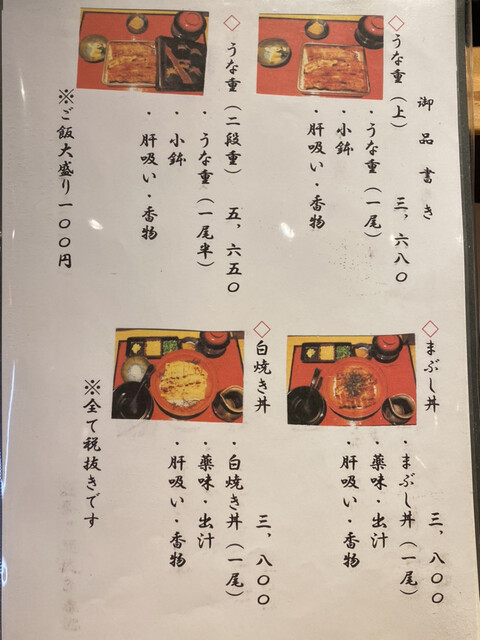 御品書き
◇うな重（上） 三、六八〇
・うな重（一尾）
・小鉢
・肝吸い・香物
◇うな重（二段重） 五、六五〇
・うな重（一尾半）
・小鉢
・肝吸い・香物
※ご飯大盛り一〇〇円
◇まぶし丼 三、八〇〇
・まぶし丼（一尾）
・薬味・出汁
・肝吸い・香物
◇白焼き丼 三、八〇〇
・白焼き丼（一尾）
・薬味・出汁
・肝吸い・香物
※全て税抜きです